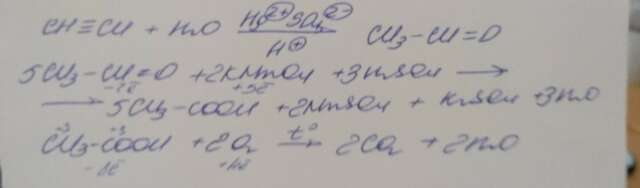 CH≡CH + H₂O Hg²⁺SO₄²⁻ H⁺ CH₃–CH=O
5CH₃–CH=O + 2KMnO₄ + 3H₂SO₄ →
→ 5CH₃–COOH + 2MnSO₄ + K₂SO₄ + 3H₂O
CH₃–COOH + 2O₂ t° → 2CO₂ + 2H₂O